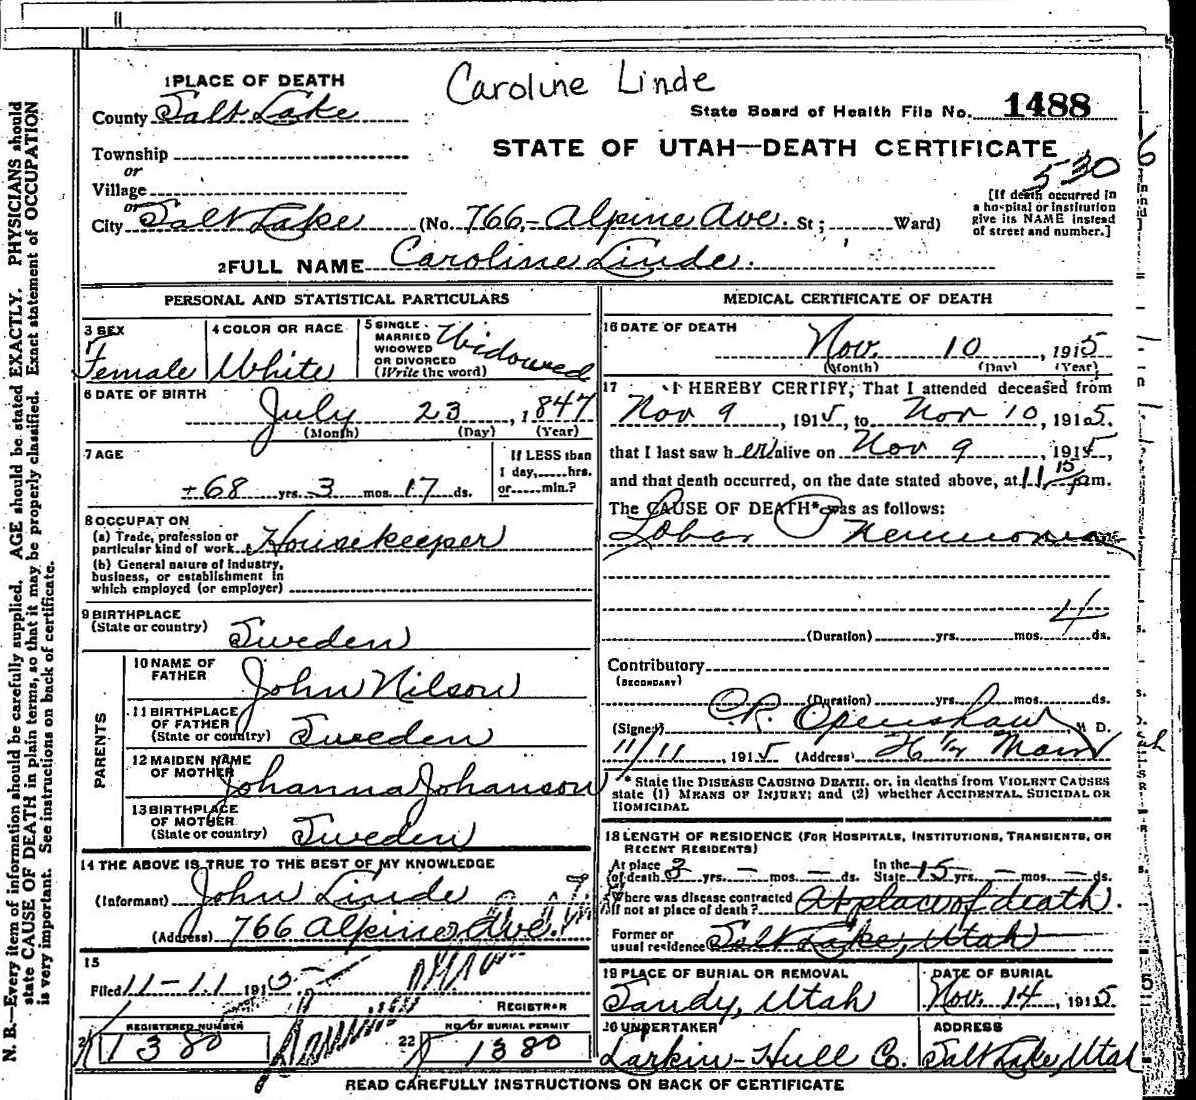 Caroline Linde
1 PLACE OF DEATH
County Salt Lake
State Board of Health File No. 1488
Township
or
Village
or
City Salt Lake (No. 766, Alpine Ave. St; Ward)
STATE OF UTAH—DEATH CERTIFICATE
530
[If death occurred in
a hospital or institution
give its NAME instead
of street and number.]
2 FULL NAME Caroline Linde.
PERSONAL AND STATISTICAL PARTICULARS
3 SEX
Female
4 COLOR OR RACE
White
5 SINGLE
MARRIED
WIDOWED
OR DIVORCED
(Write the word)
Widowed
6 DATE OF BIRTH
July 23, 1847
(Month) (Day) (Year)
7 AGE
68 yrs. 3 mos. 17 ds.
If LESS than
1 day, hrs.
or min.?
8 OCCUPATION
(a) Trade, profession or
particular kind of work Housekeeper
(b) General nature of industry,
business, or establishment in
which employed (or employer)
9 BIRTHPLACE
(State or country)
Sweden
PARENTS
10 NAME OF
FATHER
John Nilson
11 BIRTHPLACE
OF FATHER
(State or country)
Sweden
12 MAIDEN NAME
OF MOTHER
Johanna Johanson
13 BIRTHPLACE
OF MOTHER
(State or country)
Sweden
14 THE ABOVE IS TRUE TO THE BEST OF MY KNOWLEDGE
(Informant) John Linde
(Address) 766 Alpine Ave.
15
Filed 11-11 1915
REGISTRAR
REGISTERED NUMBER
21 1380
NO. OF BURIAL PERMIT
22 1380
MEDICAL CERTIFICATE OF DEATH
16 DATE OF DEATH
Nov. 10, 1915
(Month) (Day) (Year)
17 I HEREBY CERTIFY, That I attended deceased from
Nov 9, 1915, to Nov 10, 1915.
that I last saw her alive on Nov 9, 1915,
and that death occurred, on the date stated above, at 11 15 pm.
The CAUSE OF DEATH* was as follows:
Lobar Pneumonia
4
(Duration) yrs. mos. ds.
Contributory
(SECONDARY)
(Duration) yrs. mos. ds.
(Signed) C.R. Openshaw M D.
11/11, 1915 (Address) 26 1/2 Main
* State the DISEASE CAUSING DEATH, or, in deaths from VIOLENT CAUSES
state (1) MEANS OF INJURY; and (2) whether ACCIDENTAL, SUICIDAL OR
HOMICIDAL
18 LENGTH OF RESIDENCE (FOR HOSPITALS, INSTITUTIONS, TRANSIENTS, OR
RECENT RESIDENTS)
At place
of death 3 yrs. — mos. — ds.
In the
State 15 yrs. — mos. — ds.
Where was disease contracted
if not at place of death? At place of death.
Former or
usual residence Salt Lake, Utah
19 PLACE OF BURIAL OR REMOVAL
Sandy, Utah
DATE OF BURIAL
Nov. 14, 1915
20 UNDERTAKER
Larkin-Hull Co.
ADDRESS
Salt Lake, Utah
READ CAREFULLY INSTRUCTIONS ON BACK OF CERTIFICATE
N. B.—Every item of information should be carefully supplied. AGE should be stated EXACTLY. PHYSICIANS should
state CAUSE OF DEATH in plain terms, so that it may be properly classified. Exact statement of OCCUPATION
is very important. See instructions on back of certificate.